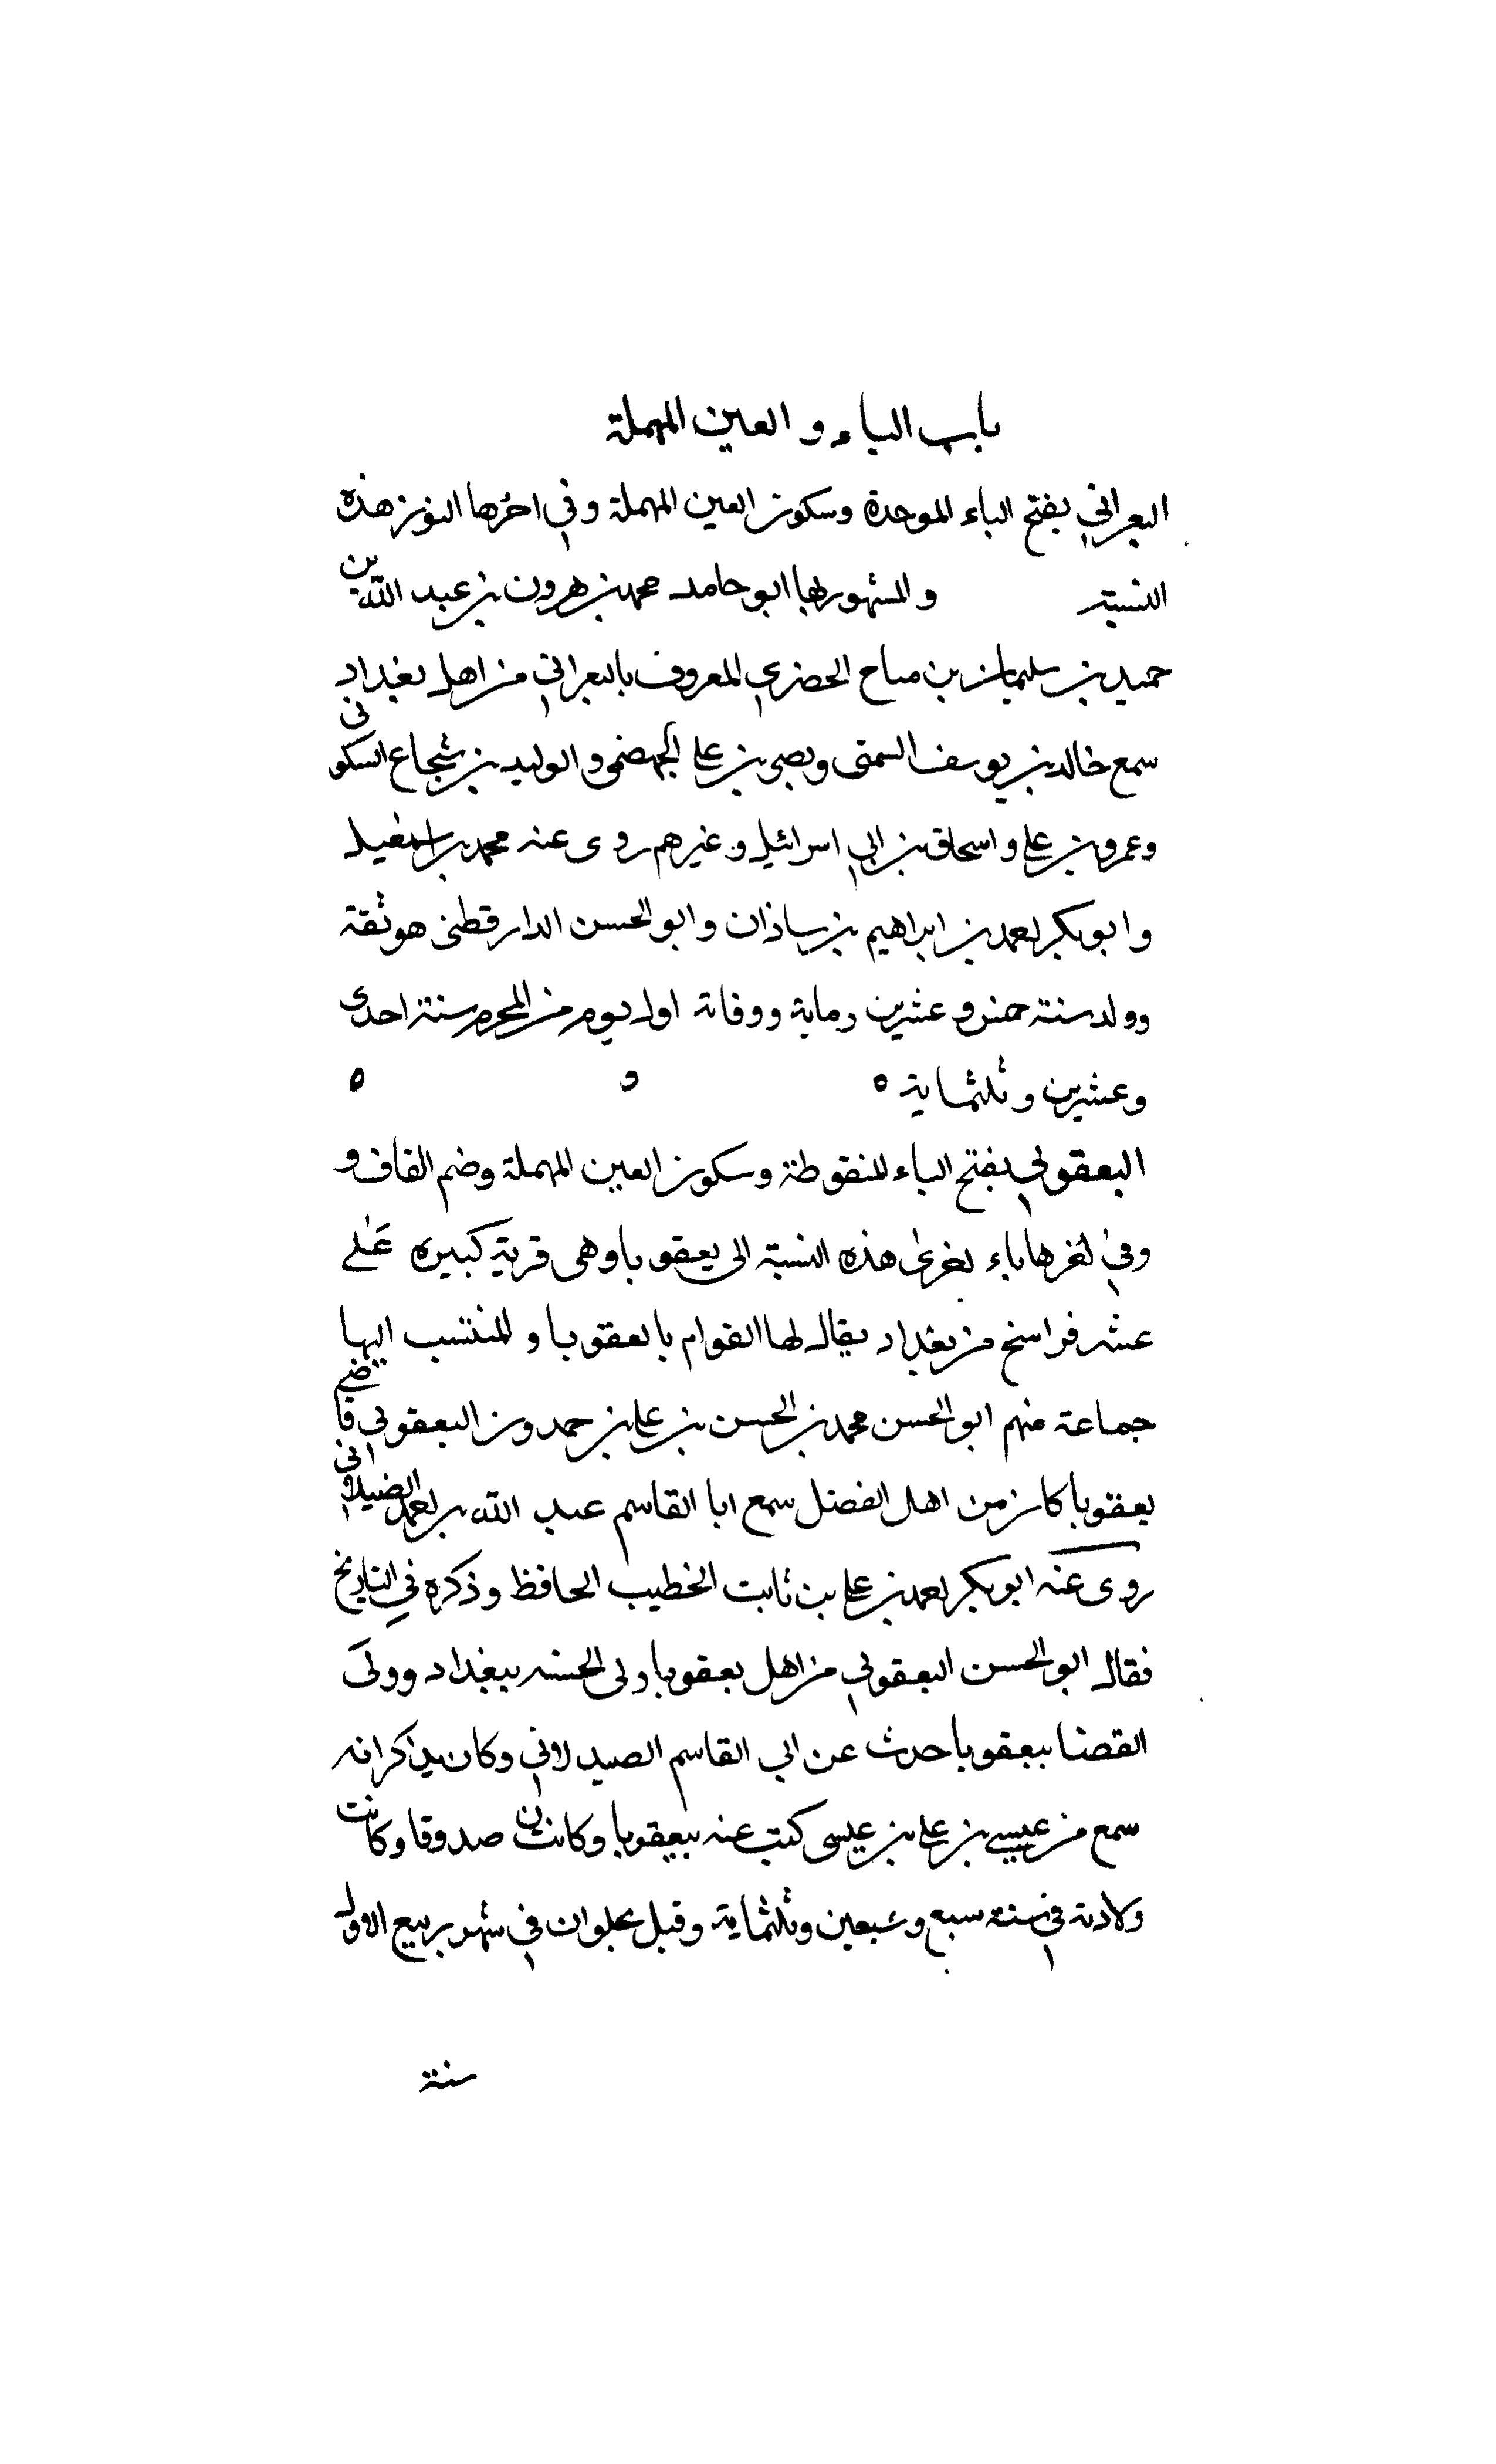 باب الباء و العين المهملة
البعراني بفتح الباء الموحدة وسكون العين المهملة وفي اخرها النون هذه
النسبة والمشهور بها ابو حامد محمد بن هرون بن عبد الله بن
حميد بن سليمان بن مياح الحضرمي المعروف بالبعراني من اهل بغداد
سمع خالد بن يوسف السمتى ونصر بن على الجهضمى والوليد بن شجاع السكونى
وعمرو بن على واسحاق بن ابي اسرائيل وغيرهم روى عنه محمد بن اسمعيل
وابو بكر احمد بن ابراهيم بن شاذان وابو الحسن الدارقطنى هو ثقة
وولد سنة خمس وعشرين ومايه ووفاته اول يوم من المحرم سنة احدى
وعشرين وثلثماية ٥ ٥ ٥
البعقوبي بفتح الباء المنقوطة وسكون العين المهملة وضم القاف و
وفي اخرها باء اخرى هذه النسبة الى بعقوبا وهى قرية كبيره على
عشر فراسخ من بغداد يقال لها القوام بابعقوبا والمنتسب اليها
جماعة منهم ابو الحسن محمد بن الحسن بن على بن حمدون البعقوبي قاضى
بعقوبا كان من اهل الفضل سمع ابا القاسم عبد الله بن احمد الصيدلانى
روى عنه ابو بكر احمد بن على بن ثابت الخطيب الحافظ وذكره في التاريخ
فقال ابو الحسن البعقوبي من اهل بعقوبا ولى الحسبه ببغداد وولى
القضا ببعقوبا حدث عن ابي القاسم الصيدلاني وكان يذكر انه
سمع من عيسى بن على بن عيسى كتبت عنه ببعقوبا وكان صدوقا وكانت
ولادته في سنة سبع وسبعين وثلثماية وقتل بحلوان في شهر ربيع الاول
سنة